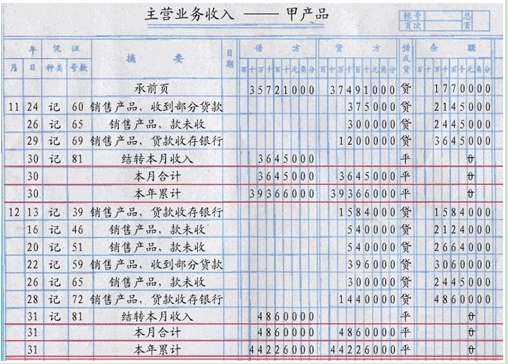 主营业务收入 —— 甲产品
帐号 总页
页次
年 凭证 摘要 日期 借方 贷方 借或贷 余额
月 日 种类 号数 百十万千百十元角分 百十万千百十元角分 百十万千百十元角分
承前页 35721000 37491000 贷 1770000
11 24 记 60 销售产品，收到部分货款 375000 贷 2145000
26 记 65 销售产品，款未收 300000 贷 2445000
29 记 69 销售产品，货款收存银行 1200000 贷 3645000
30 记 81 结转本月收入 3645000 平 0
30 本月合计 3645000 3645000 平 0
30 本年累计 39366000 39366000 平 0
12 13 记 39 销售产品，货款收存银行 1584000 贷 1584000
16 记 46 销售产品，款未收 540000 贷 2124000
20 记 51 销售产品，款未收 540000 贷 2664000
22 记 59 销售产品，收到部分货款 396000 贷 3060000
26 记 65 销售产品，款未收 300000 贷 2445000
28 记 72 销售产品，货款收存银行 1440000 贷 4860000
31 记 81 结转本月收入 4860000 平 0
31 本月合计 4860000 4860000 平 0
31 本年累计 44226000 44226000 平 0